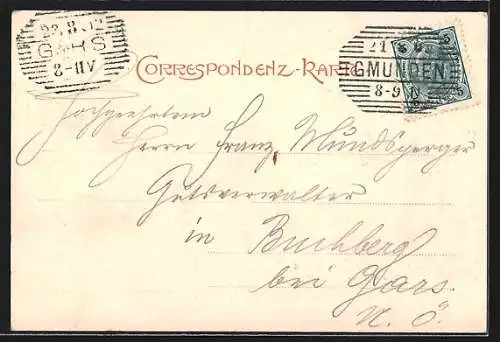 22.8.02
GARS
8-11V
CORRESPONDENZ-KARTE
21 8
GMUNDEN
8-9
Hochgeehrtem
Herrn Franz Mundsperger
Gutsverwalter
in Buchberg
bei Gars.
N. Ö.